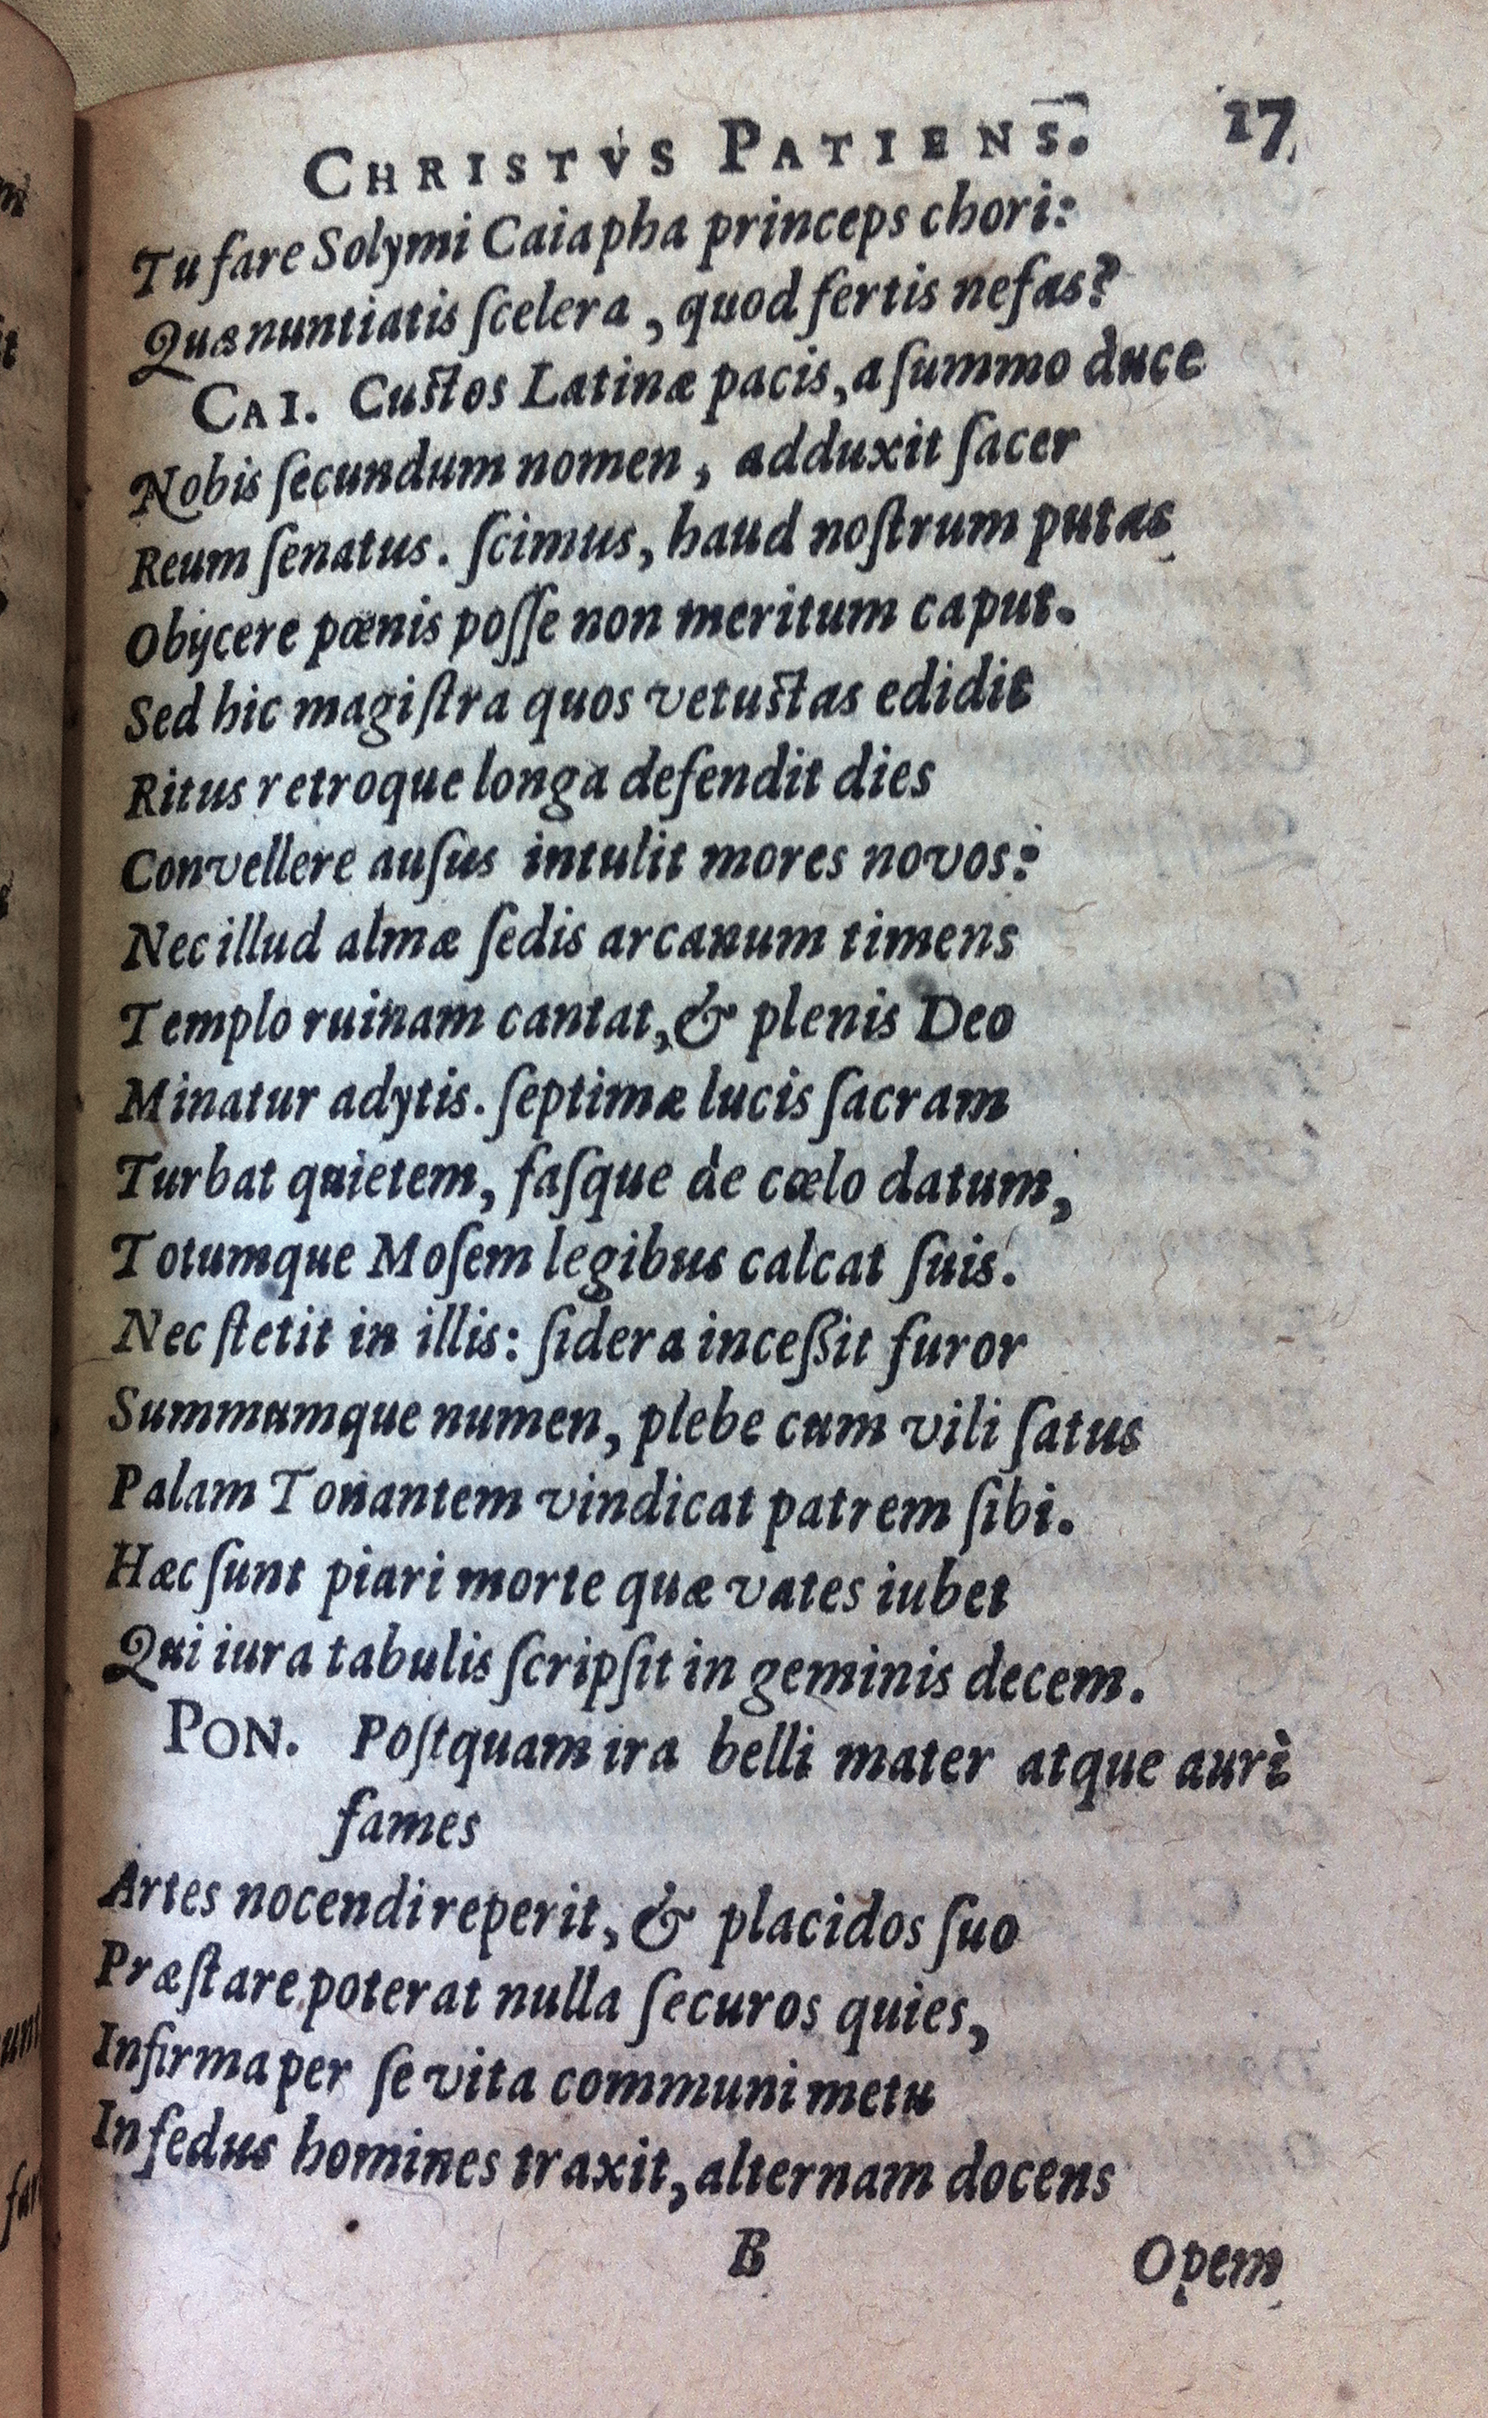 CHRISTVS PATIENS. 17
Tu fare Solymi Caiapha princeps chori:
Quæ nuntiatis ſcelera, quod fertis nefas?
CAI. Cuſtos Latinæ pacis, a ſummo duce
Nobis ſecundum nomen, adduxit ſacer
Reum ſenatus. ſcimus, haud noſtrum putas
Obijcere pœnis poſſe non meritum caput.
Sed hic magiſtra quos vetuſtas edidit
Ritus retroque longa defendit dies
Convellere auſus intulit mores novos:
Nec illud almæ ſedis arcanum timens
Templo ruinam cantat, & plenis Deo
Minatur adytis. ſeptimæ lucis ſacram
Turbat quietem, faſque de cœlo datum,
Totumque Moſem legibus calcat ſuis.
Nec ſtetit in illis: ſidera inceßit furor
Summumque numen, plebe cum vili ſatus
Palam Tonantem vindicat patrem ſibi.
Hæc ſunt piari morte quæ vates iubet
Qui iura tabulis ſcripſit in geminis decem.
PON. Poſtquam ira belli mater atque auri
fames
Artes nocendi reperit, & placidos ſuo
Præſtare poterat nulla ſecuros quies,
Infirma per ſe vita communi metu
In fedus homines traxit, alternam docens
B Opem